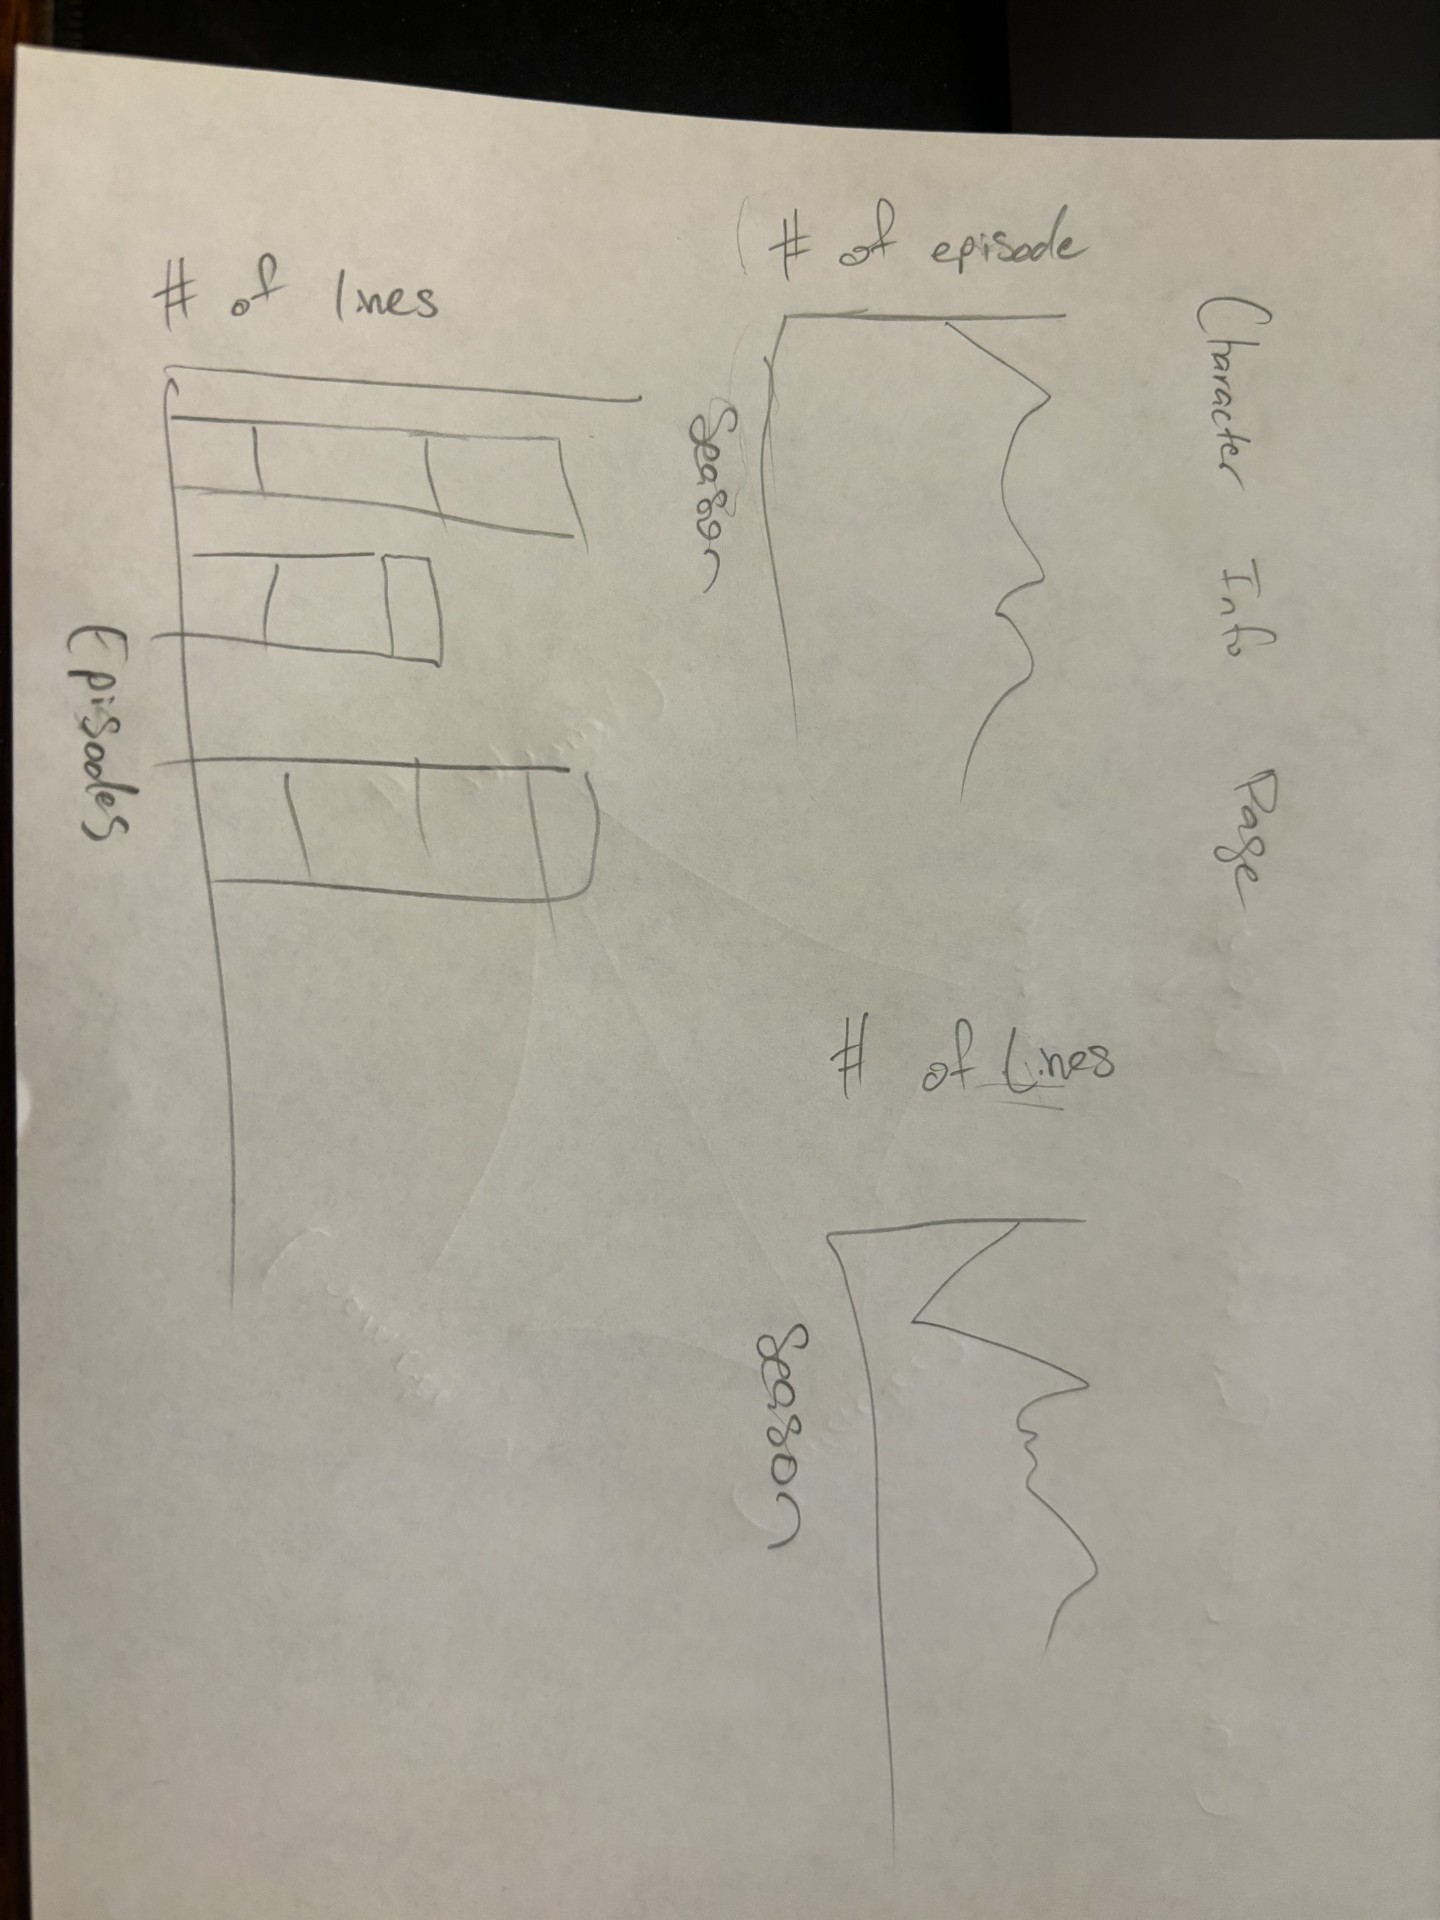 Character Info Page
# of episode
Season
# of lines
Season
# of lines
Episodes